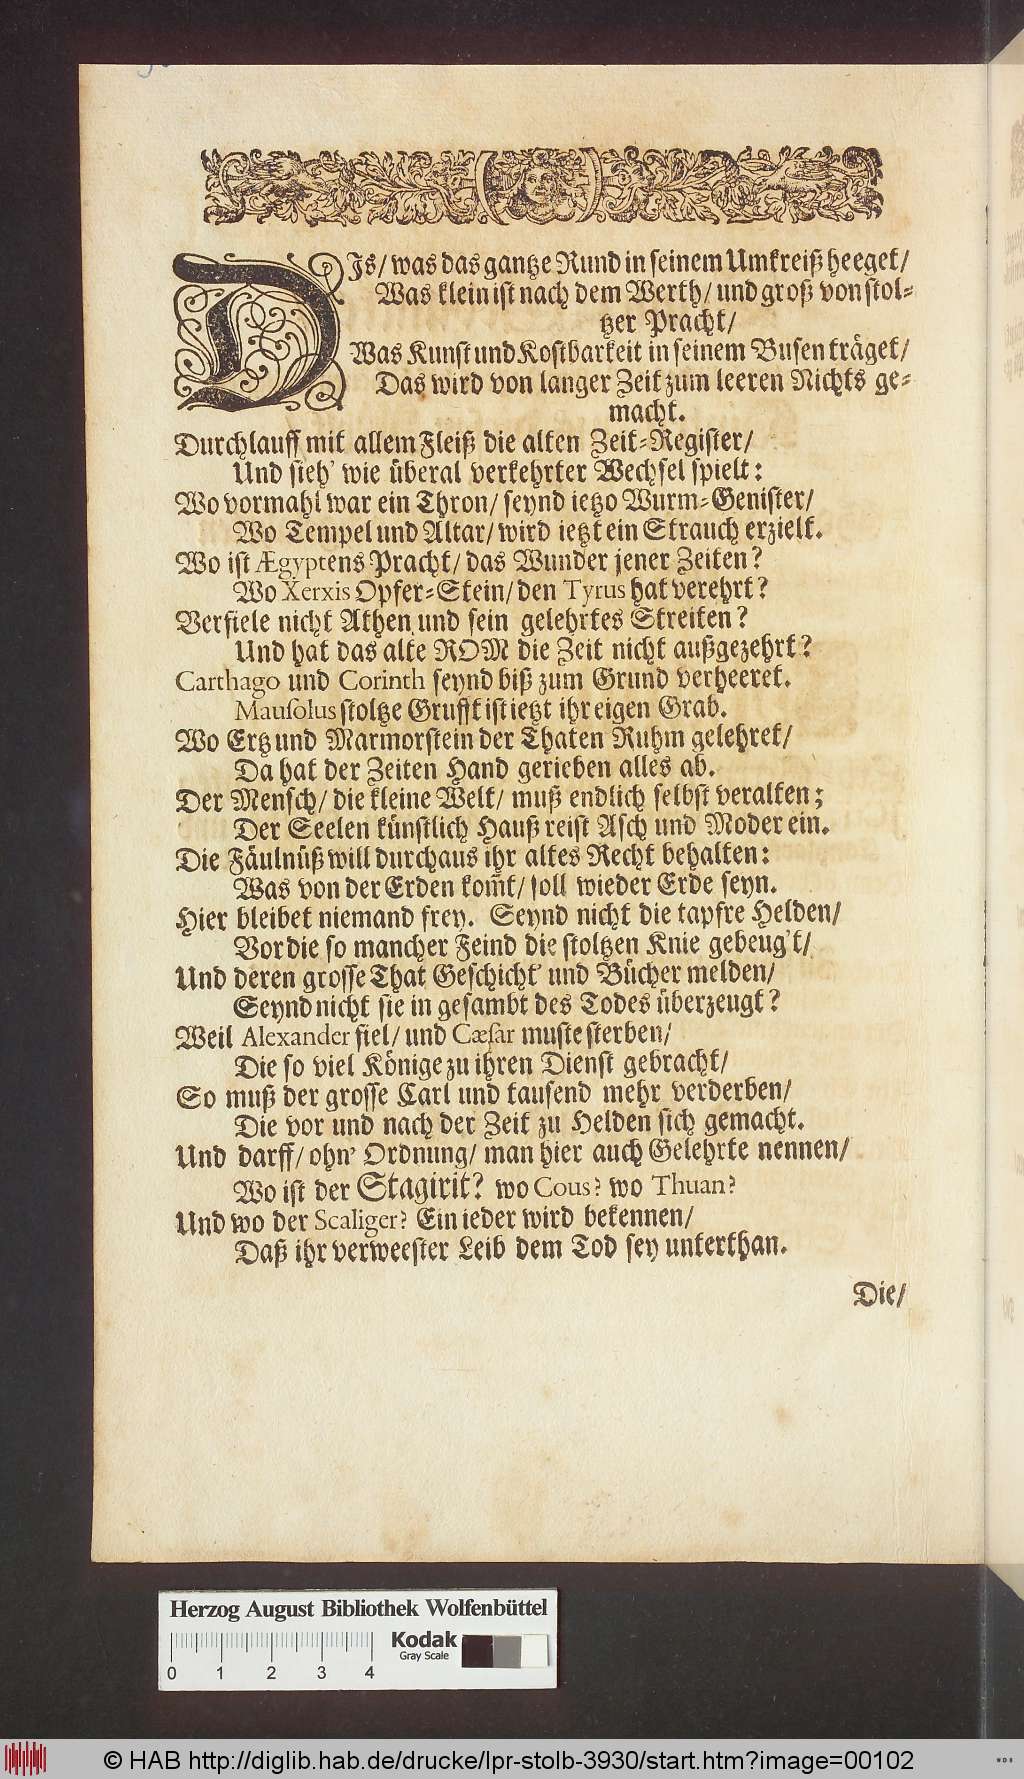 DIs/ was das gantze Rund in seinem Umkreiß heeget/
Was klein ist nach dem Werth/ und groß von stol-
tzer Pracht/
Was Kunst und Kostbarkeit in seinem Busen träget/
Das wird von langer Zeit zum leeren Nichts ge-
macht.
Durchlauff mit allem Fleiß die alten Zeit-Register/
Und sieh' wie überal verkehrter Wechsel spielt:
Wo vormahl war ein Thron/ seynd ietzo Wurm-Genister/
Wo Tempel und Altar/ wird ietzt ein Strauch erzielt.
Wo ist Ægyptens Pracht/ das Wunder jener Zeiten?
Wo Xerxis Opfer-Stein/ den Tyrus hat verehrt?
Verfiele nicht Athen und sein gelehrtes Streiten?
Und hat das alte ROM die Zeit nicht außgezehrt?
Carthago und Corinth seynd biß zum Grund verheeret.
Mausolus stoltze Grufft ist ietzt ihr eigen Grab.
Wo Ertz und Marmorstein der Thaten Ruhm gelehret/
Da hat der Zeiten Hand gerieben alles ab.
Der Mensch/ die kleine Welt/ muß endlich selbst veralten;
Der Seelen künstlich Hauß reist Asch und Moder ein.
Die Fäulnüß will durchaus ihr altes Recht behalten:
Was von der Erden kom̃t/ soll wieder Erde seyn.
Hier bleibet niemand frey. Seynd nicht die tapfre Helden/
Vor die so mancher Feind die stoltzen Knie gebeug't/
Und deren grosse That Geschicht' und Bücher melden/
Seynd nicht sie in gesambt des Todes überzeugt?
Weil Alexander fiel/ und Cæsar muste sterben/
Die so viel Könige zu ihren Dienst gebracht/
So muß der grosse Carl und tausend mehr verderben/
Die vor und nach der Zeit zu Helden sich gemacht.
Und darff/ ohn' Ordnung/ man hier auch Gelehrte nennen/
Wo ist der Stagirit? wo Cous? wo Thuan?
Und wo der Scaliger? Ein ieder wird bekennen/
Daß ihr verweester Leib dem Tod sey unterthan.
Die/
Herzog August Bibliothek Wolfenbüttel
Kodak
Gray Scale
0 1 2 3 4
© HAB http://diglib.hab.de/drucke/lpr-stolb-3930/start.htm?image=00102